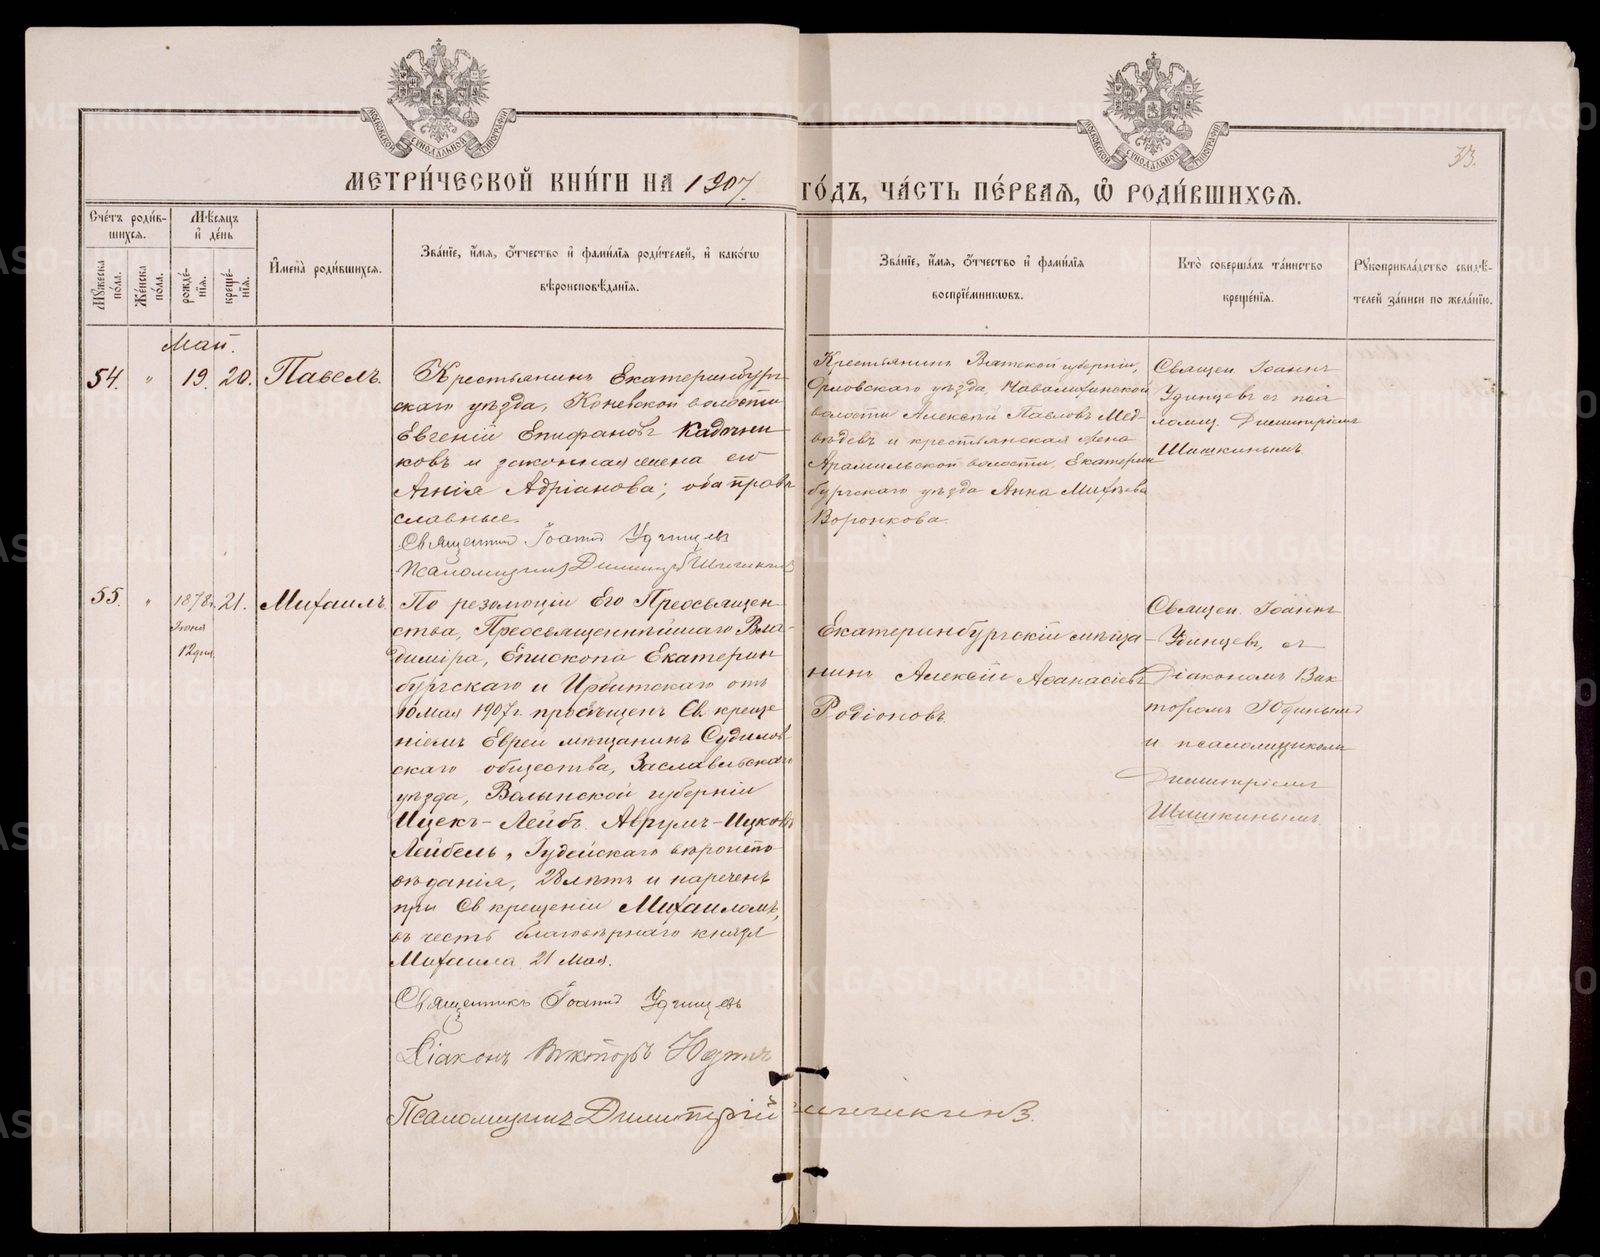 МОСКОВСКОЙ СѴНОДАЛЬНОЙ ТИПОГРАФІИ
МОСКОВСКОЙ СѴНОДАЛЬНОЙ ТИПОГРАФІИ
33.
МЕТРИ́ЧЕСКОЙ КНИ́ГИ НА 1907. ГО́ДЪ, ЧА́СТЬ ПЕ́РВАЯ, Ѿ РОДИ́ВШИХСЯ.
Сче́тъ роди́в-
шихся.
Му́жеска по́ла.
Же́нска по́ла.
Мѣ́сяцъ
и҆ де́нь
рожде́-
нїя.
креще́-
нїя.
И҆мена̀ роди́вшихся.
Зва́нїе, и҆́мя, ѻ҆́тчество и҆ фами́лїя роди́телей, и҆ како́гѡ
вѣроисповѣ́данїя.
Зва́нїе, и҆́мя, ѻ҆́тчество и҆ фами́лїя
воспрїе́мникѡвъ.
Кто̀ соверша́лъ та́инство
креще́нїя.
Рꙋкоприкла́дство свидѣ́-
телей за́писи по жела́нїю.
Май.
54. " 19. 20. Павелъ.
Крестьянинъ Екатеринбург-
скаго уѣзда, Коневской волости
Евгеній Епифановъ Кадочни-
ковъ и законная жена его
Агнія Адріанова; оба право-
славные.
Священникъ Іоаннъ Удинцевъ
Псаломщикъ Димитрій Шишкинъ
Крестьянинъ Вятской губерніи,
Орловскаго уѣзда,
волости Алексѣй Павловъ Мед-
вѣдевъ и крестьянская жена
Арамильской волости, Екатерин-
бургскаго уѣзда Анна Михѣева
Воронкова.
Священ. Іоаннъ
Удинцевъ съ пса-
ломщ. Димитріемъ
Шишкинымъ.
55. " 1878 г. 21. Михаилъ.
Іюня
12 дня
По резолюціи Его Преосвящен-
ства, Преосвященнѣйшаго Вла-
димира, Епископа Екатерин-
бургскаго и Ирбитскаго отъ
10 мая 1907 г. просвѣщенъ Св. креще-
ніемъ Еврей мѣщанинъ Судилов-
скаго общества, Заславльскаго
уѣзда, Волынской губерніи
Ицекъ-Лейбъ Аврумъ-Ицковъ
Лейбель, Іудейскаго вѣроиспо-
вѣданія, 28 лѣтъ и нареченъ
при Св. крещеніи Михаиломъ,
въ честь благовѣрнаго князя
Михаила 21 мая.
Священникъ Іоаннъ Удинцевъ
Діаконъ Викторъ Юдинъ
Псаломщикъ Димитрій Шишкинъ.
Екатеринбургскій мѣща-
нинъ Алексій Аѳанасіевъ
Родіоновъ
Священ. Іоаннъ
Удинцевъ, съ
Діакономъ Вик-
торомъ Юдинымъ
и псаломщикомъ
Димитріемъ
Шишкинымъ.
METRIKI.GASO-URAL.RU